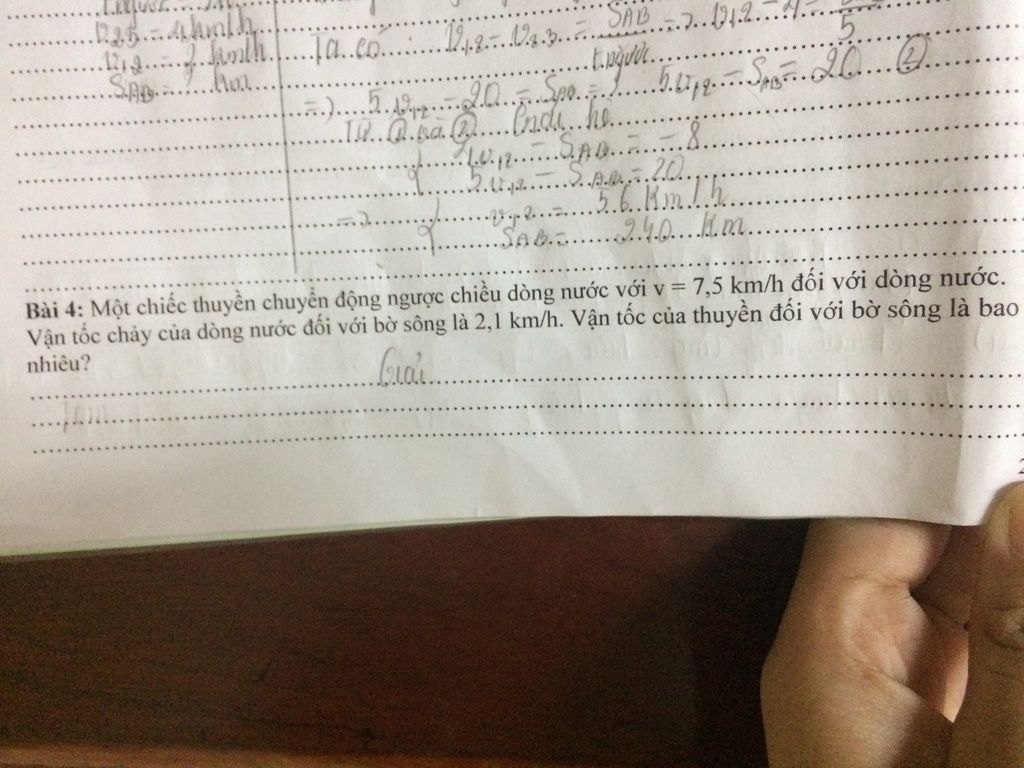 v₂,₃ = 4 km/h
v₁,₂ = ? km/h
S_AB = ? km
Ta có: v₁,₂ - v₂,₃ = S_AB / t ngược => v₁,₂ - 4 = 5
=> 5.v₁,₂ - 20 = S_AB => 5.v₁,₂ - S_AB = 20 ②
Từ ① và ② hệ
4.v₁,₂ - S_AB = -8
5.v₁,₂ - S_AB = 20
=> v₁,₂ = 56 Km/h
S_AB = 240 Km
Bài 4: Một chiếc thuyền chuyển động ngược chiều dòng nước với v = 7,5 km/h đối với dòng nước.
Vận tốc chảy của dòng nước đối với bờ sông là 2,1 km/h. Vận tốc của thuyền đối với bờ sông là bao
nhiêu?
Giải